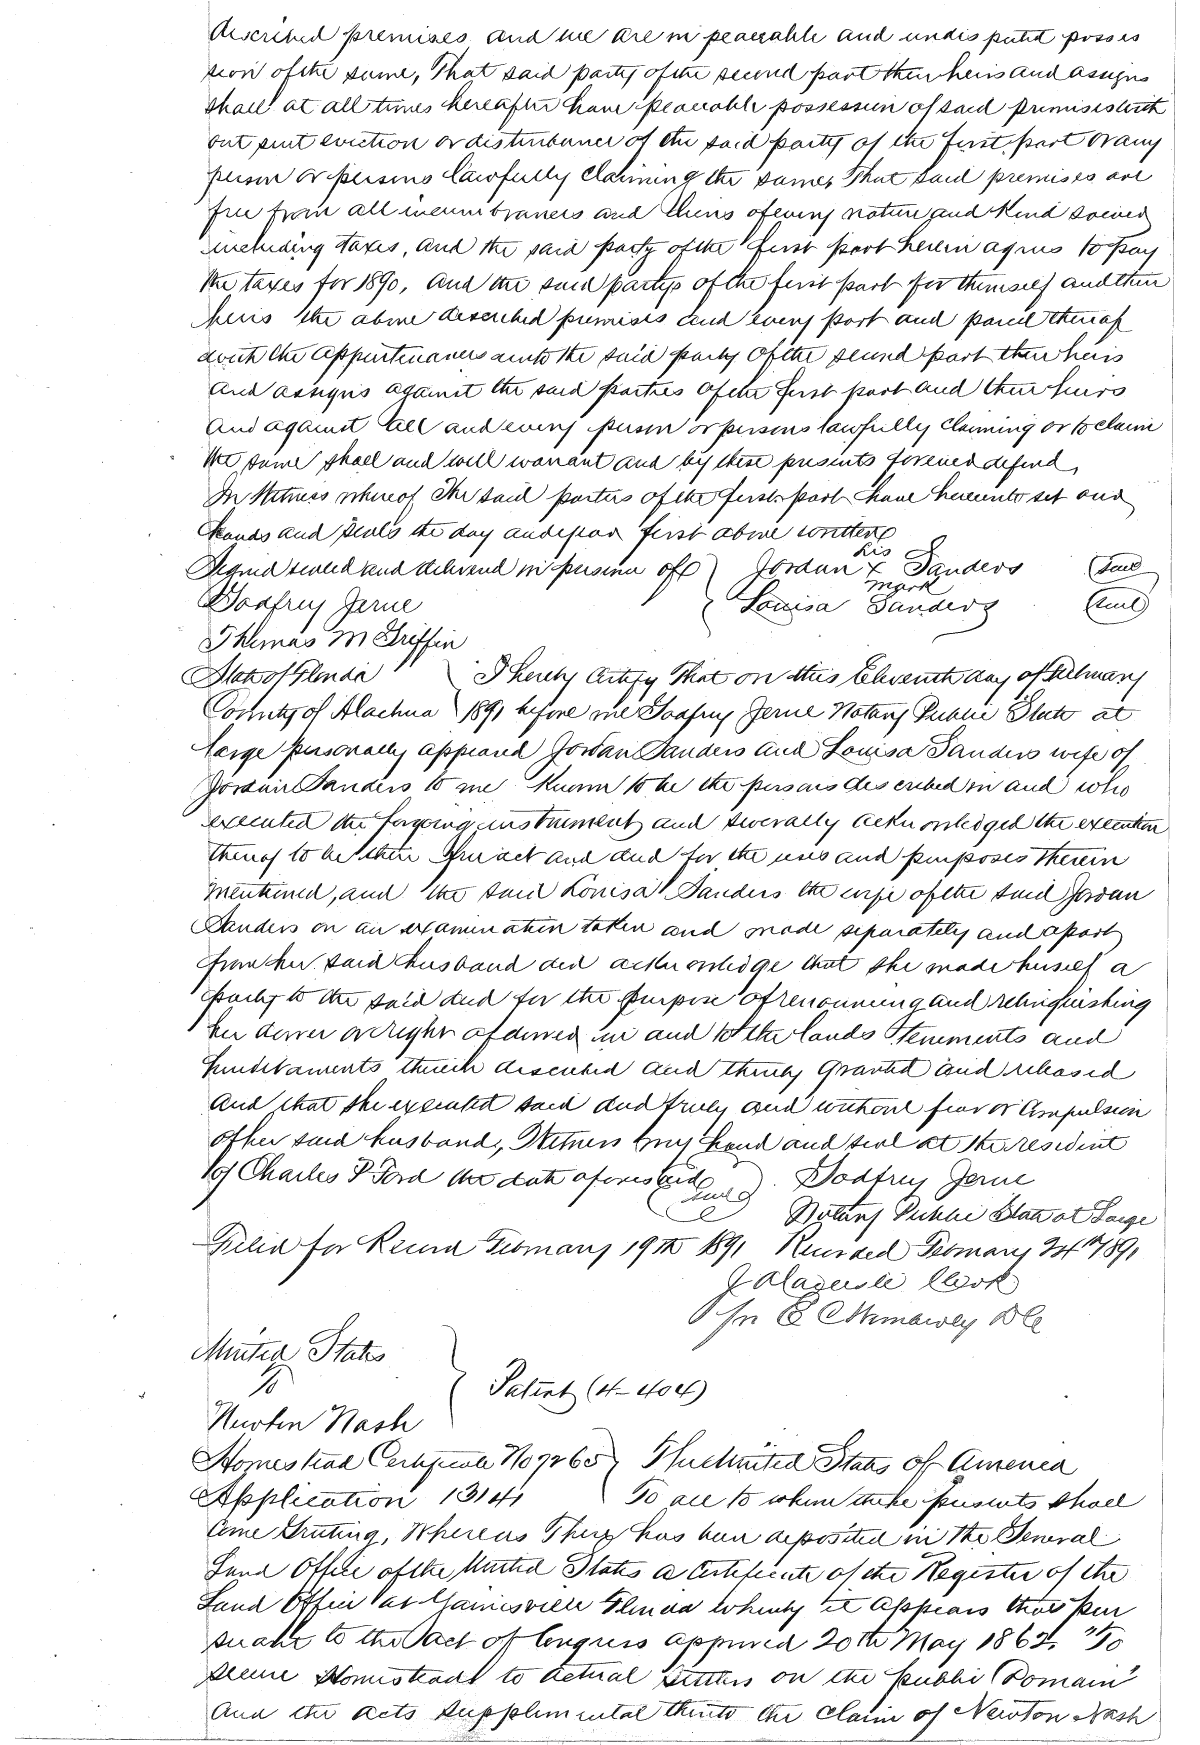 described premises and we are in peaceable and undisputed posses
sion of the same, That said party of the second part their heirs and assigns
shall at all times hereafter have peaceable possession of said premises with
out suit eviction or disturbance of the said party of the first part or any
person or persons lawfully claiming the same, That said premises are
free from all incumbrances and liens of every nature and kind soever
including taxes, and the said party of the first part herein agrees to pay
the taxes for 1890, and the said partys of the first part for themself and their
heirs the above described premises and every part and parcel thereof
with the appurtenances unto the said party of the second part their heirs
and assigns against the said parties of the first part and their heirs
And against all and every person or persons lawfully claiming or to claim
the same shall and will warrant and by these presents forever defend,
In Witness whereof The said parties of the first part have hereunto set our
hands and seals the day and year first above written
Signed sealed and delivered in presence of } Jordan his x mark Sanders (Seal)
Godfrey Jerne } Louisa Sanders (Seal)
Thomas M Griffin
State of Florida } I hereby certify That on this Eleventh day of February
County of Alachua } 1891 before me Godfrey Jerne Notary Public State at
large personally appeared Jordan Sanders and Louisa Sanders wife of
Jordan Sanders to me Known to be the persons described in and who
executed the forgoing instrument and severally acknowledged the execution
thereof to be their free act and deed for the uses and purposes therein
mentioned, and the said Louisa Sanders the wife of the said Jordan
Sanders on an examination taken and made separately and apart
from her said husband did acknowledge that she made herself a
party to the said deed for the purpose of renouncing and relinquishing
her dower or right of dower in and to the lands Tenements and
herediaments therein described and thereby granted and released
And that she executed said deed freely and without fear or compulsion
of her said husband, Witness my hand and seal at the resident
of Charles P Ford the date aforesaid (Seal) Godfrey Jerne
Notary Public State at Large
Filed for Record February 19th 1891 Recorded February 24th 1891
Clerk
Per E C DC
United States
To } Patent (4-404)
Newton Nash
Homestead Certificate No 7265 } The United States of America
Application 13141 } To all to whom these presents shall
Come Greeting, Whereas There has been deposited in the General
Land Office of the United States a Certificate of the Register of the
Land Office at Gainesville Florida whereby it appears that pur
suant to the act of Congress approved 20th May 1862, "To
secure Homesteads to actual settlers on the public Domain"
And the acts supplemental thereto the claim of Newton Nash